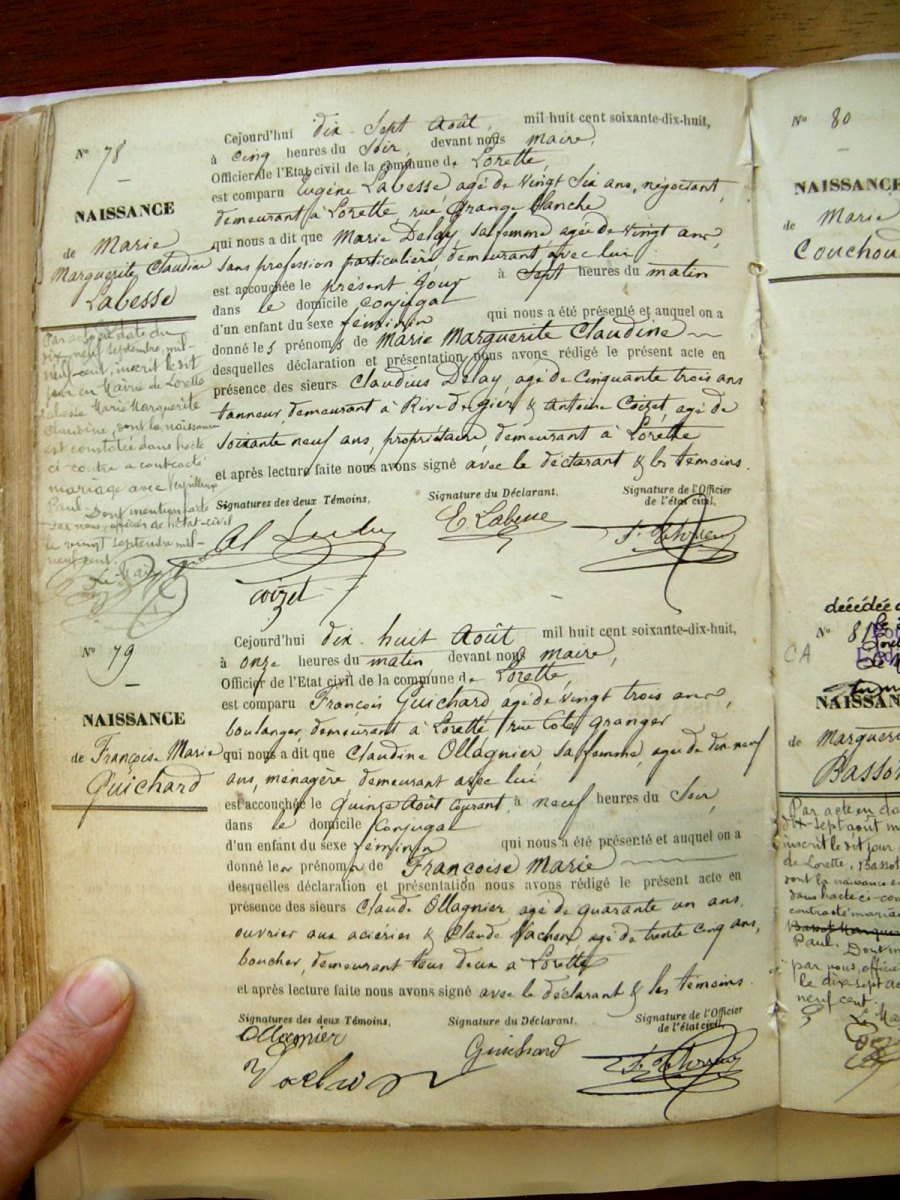 N° 78
NAISSANCE
de Marie
Marguerite Claudine
Labesse
Par acte en date du
dix-neuf septembre, mil-
neuf-cent, inscrit le dit
jour en Mairie de Lorette
Labesse Marie Marguerite
Claudine, dont la naissance
est constatée dans l'acte
ci-contre a contracté
mariage avec
Paul. Dont mention faite
par nous, officier de l'état-civil
le vingt septembre mil-
neuf cent.
Cejourd'hui dix-sept Août, mil huit cent soixante-dix-huit,
à cinq heures du soir, devant nous maire,
Officier de l'Etat civil de la commune de Lorette,
est comparu Eugène Labesse agé de vingt six ans, négociant,
demeurant à Lorette, rue Grange Blanche
qui nous a dit que Marie Delay sa femme agée de vingt ans,
sans profession particulière demeurant avec lui
est accouchée le présent jour à sept heures du matin
dans le domicile conjugal
d'un enfant du sexe féminin qui nous a été présenté et auquel on a
donné les prénoms de Marie Marguerite Claudine
desquelles déclaration et présentation nous avons rédigé le présent acte en
présence des sieurs Claudius Delay, agé de cinquante trois ans
tanneur, demeurant à Rive de gier & Antoine Coizet, agé de
soixante neuf ans, propriétaire, demeurant à Lorette
et après lecture faite nous avons signé avec le déclarant & les témoins.
Signatures des deux Témoins. Signature du Déclarant. Signature de l'Officier
de l'état civil.
E Labesse
Coizet
N° 79
NAISSANCE
de Françoise Marie
Guichard
Cejourd'hui dix-huit Août mil huit cent soixante-dix-huit,
à onze heures du matin devant nous maire,
Officier de l'Etat civil de la commune de Lorette,
est comparu François Guichard, agé de vingt trois ans,
boulanger, demeurant à Lorette, rue Côte Granger
qui nous a dit que Claudine Ollagnier sa femme, agée de dix neuf
ans, ménagère demeurant avec lui
est accouchée le quinze Août courant à neuf heures du soir,
dans le domicile conjugal
d'un enfant du sexe féminin qui nous a été présenté et auquel on a
donné le prénom de Françoise Marie
desquelles déclaration et présentation nous avons rédigé le présent acte en
présence des sieurs Claude Ollagnier agé de quarante un ans,
ouvrier aux aciéries & Claude Vacheron agé de trente cinq ans,
boucher, demeurant tous deux à Lorette
et après lecture faite nous avons signé avec le déclarant & les témoins.
Signatures des deux Témoins. Signature du Déclarant. Signature de l'Officier
de l'état civil.
Ollagnier
Guichard
N° 80
NAISSANCE
de Marie
Couchou
décédée
N° 81
CA
NAISSAN
de Margueri
Basso
Par acte en da
dix-sept août m
inscrit le dit jour
de Lorette, Basso
dont la naissance e
dans l'acte ci-con
contracté maria
Paul. Dont m
par nous, offici
le dix sept ao
neuf cent.
Le Ma